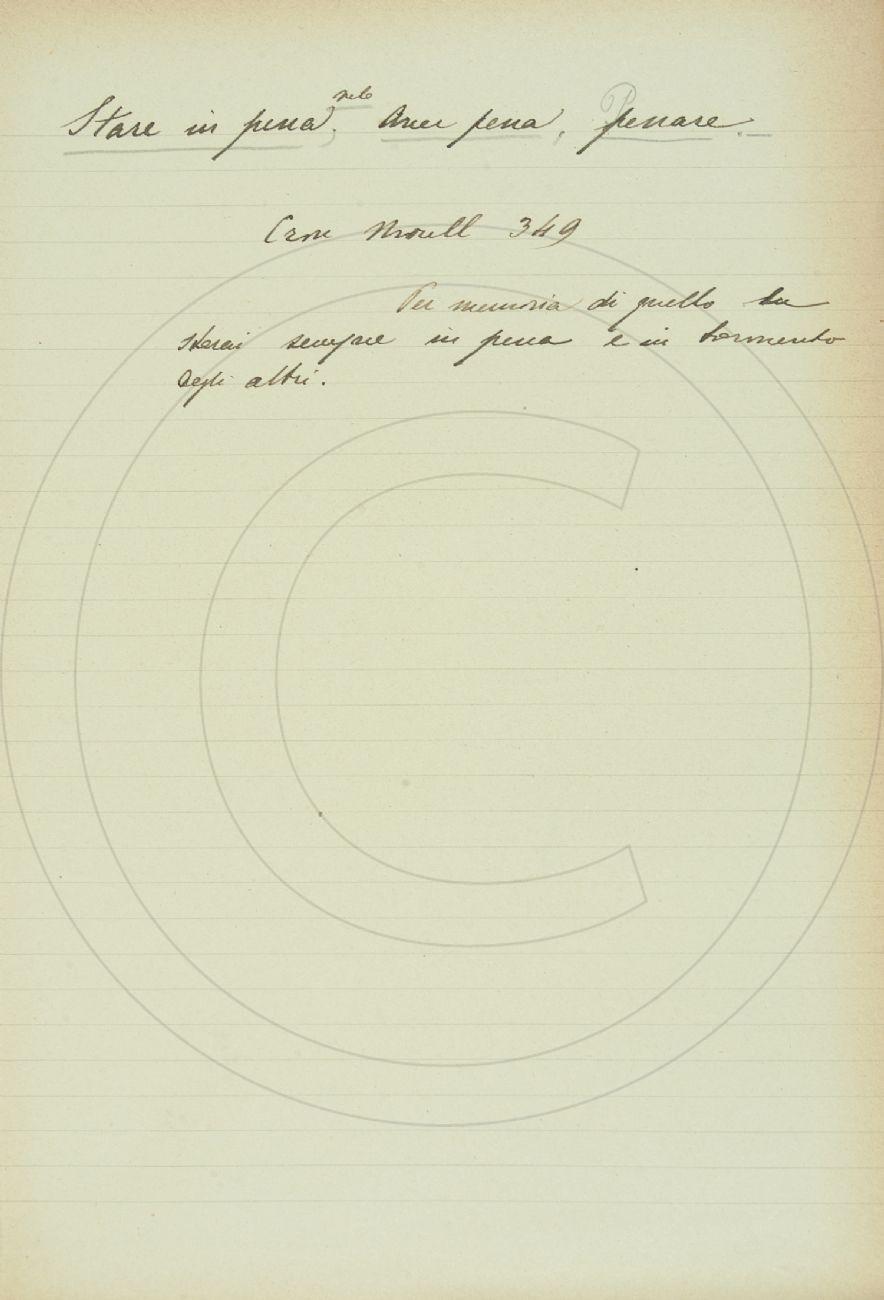 Stare in pena, Aver pena, penare.
Cron Morell 349
Per memoria di quello tu
starai sempre in pena e in tormento
degli altri.